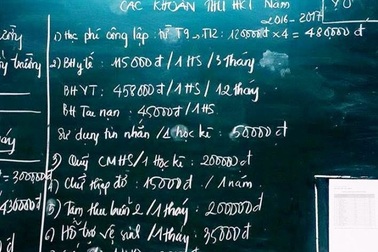 CÁC KHOẢN THU HKI Năm
2016-2017
1) Học phí công lập: từ T9→T12: 120000đ × 4 = 480.000đ
2) BHytế: 115000đ/1HS/3tháng
BHYT: 458000đ/1HS/12tháng
BH Tai nạn: 45000đ/1HS
Sử dụng tin nhắn/1 học kì: 50000đ
3) Quỹ CMHS/1 Học kì: 200000đ
4) Chữ thập đỏ: 15000đ/1năm
5) Tạm thu buổi 2/1tháng: 200000đ
6) Hỗ trợ vệ sinh/1tháng: 35000đ
430000đ